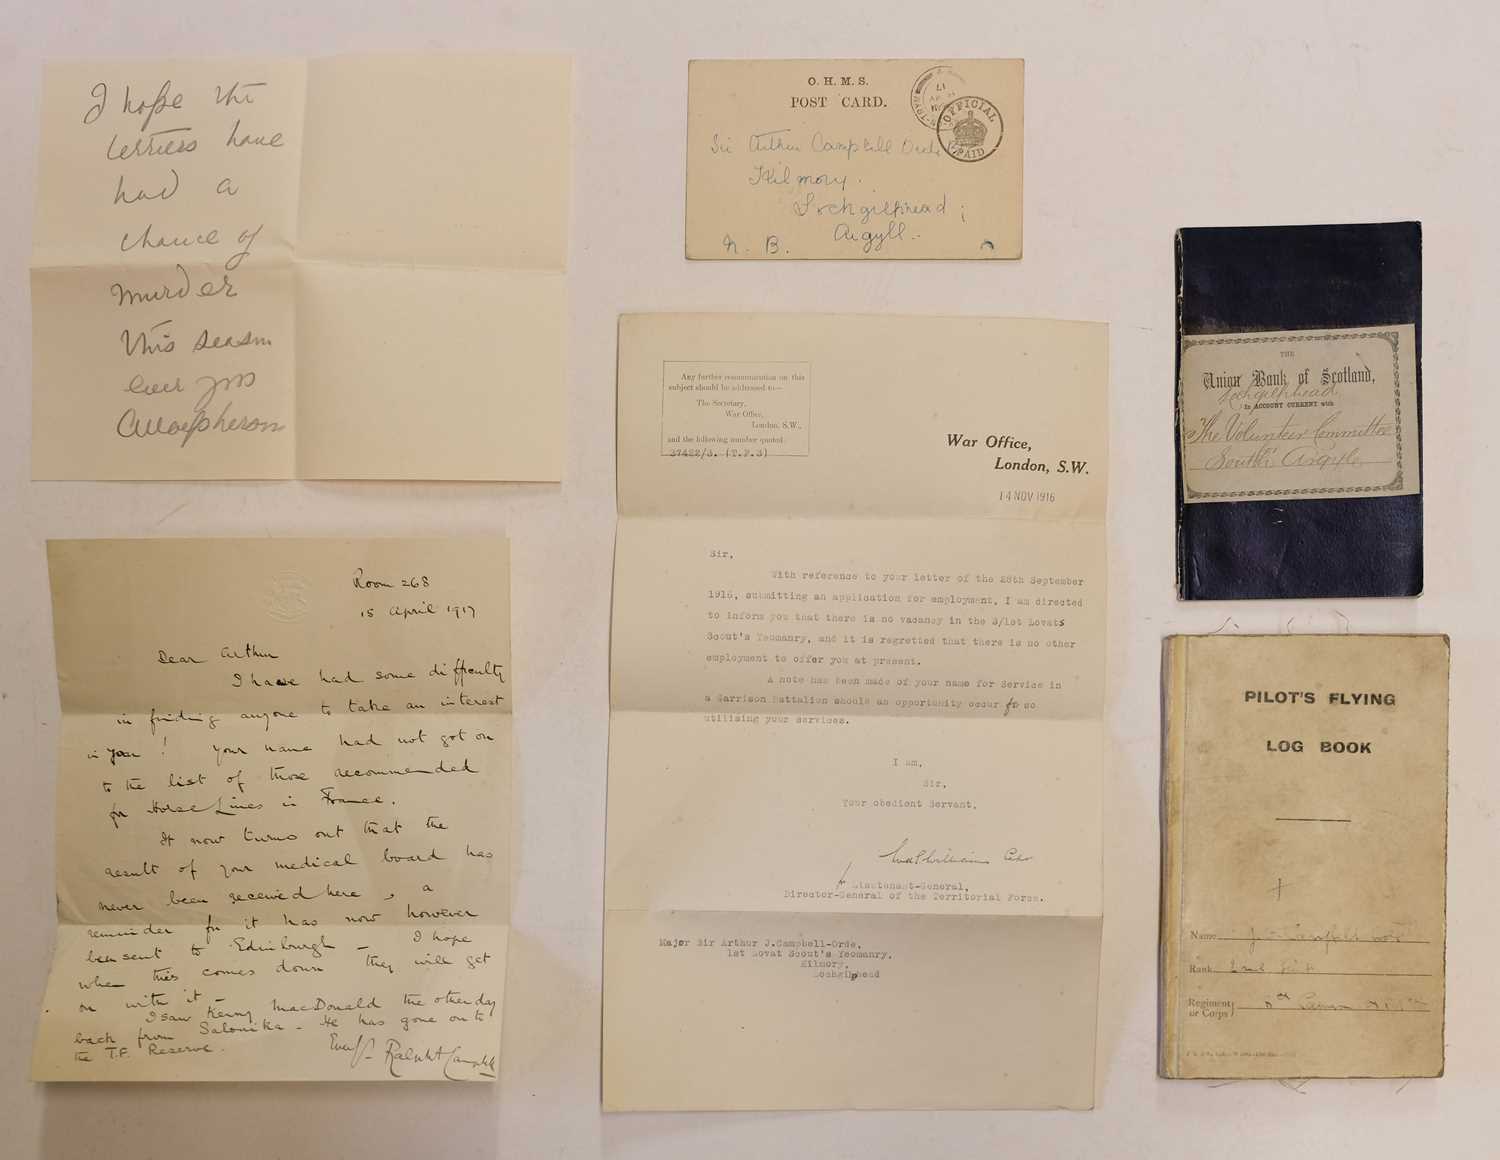 I hope the
terriers have
had a
chance of
murder
this season
Ever yrs
O. H. M. S.
POST CARD.
OFFICIAL
PAID
Sir Arthur Campbell Orde
Kilmory.
Lochgilphead;
Argyll.
N. B.
Any further communication on this
subject should be addressed to—
The Secretary,
War Office,
London, S.W.,
and the following number quoted.
37422/3. (T.F.3)
War Office,
London, S.W.
14 NOV 1916
Sir,
With reference to your letter of the 28th September
1916, submitting an application for employment, I am directed
to inform you that there is no vacancy in the 3/1st Lovats
Scout's Yeomanry, and it is regretted that there is no other
employment to offer you at present.
A note has been made of your name for Service in
a Garrison Battalion should an opportunity occur for so
utilising your services.
I am,
Sir,
Your obedient Servant,
Lieutenant-General,
Director-General of the Territorial Force.
Major Sir Arthur J.Campbell-Orde,
1st Lovat Scout's Yeomanry,
Kilmory,
Lochgilphead
Room 268
15 April 1917
Dear Arthur
I have had some difficulty
in finding anyone to take an interest
in you! Your name had not got on
to the list of those recommended
for Horse Lines in France.
It now turns out that the
result of your medical board has
never been received here, a
reminder for it has now however
been sent to Edinburgh — I hope
when this comes down they will get
on with it —
I saw Kenny MacDonald the other day
back from Salonika — He has gone on to
the T.F. Reserve.
Ralph Campbell
THE
Union Bank of Scotland,
Lochgilphead
In ACCOUNT CURRENT with
The Volunteer Committee
South Argyle
PILOT'S FLYING
LOG BOOK
Name
Rank
Regiment
or Corps